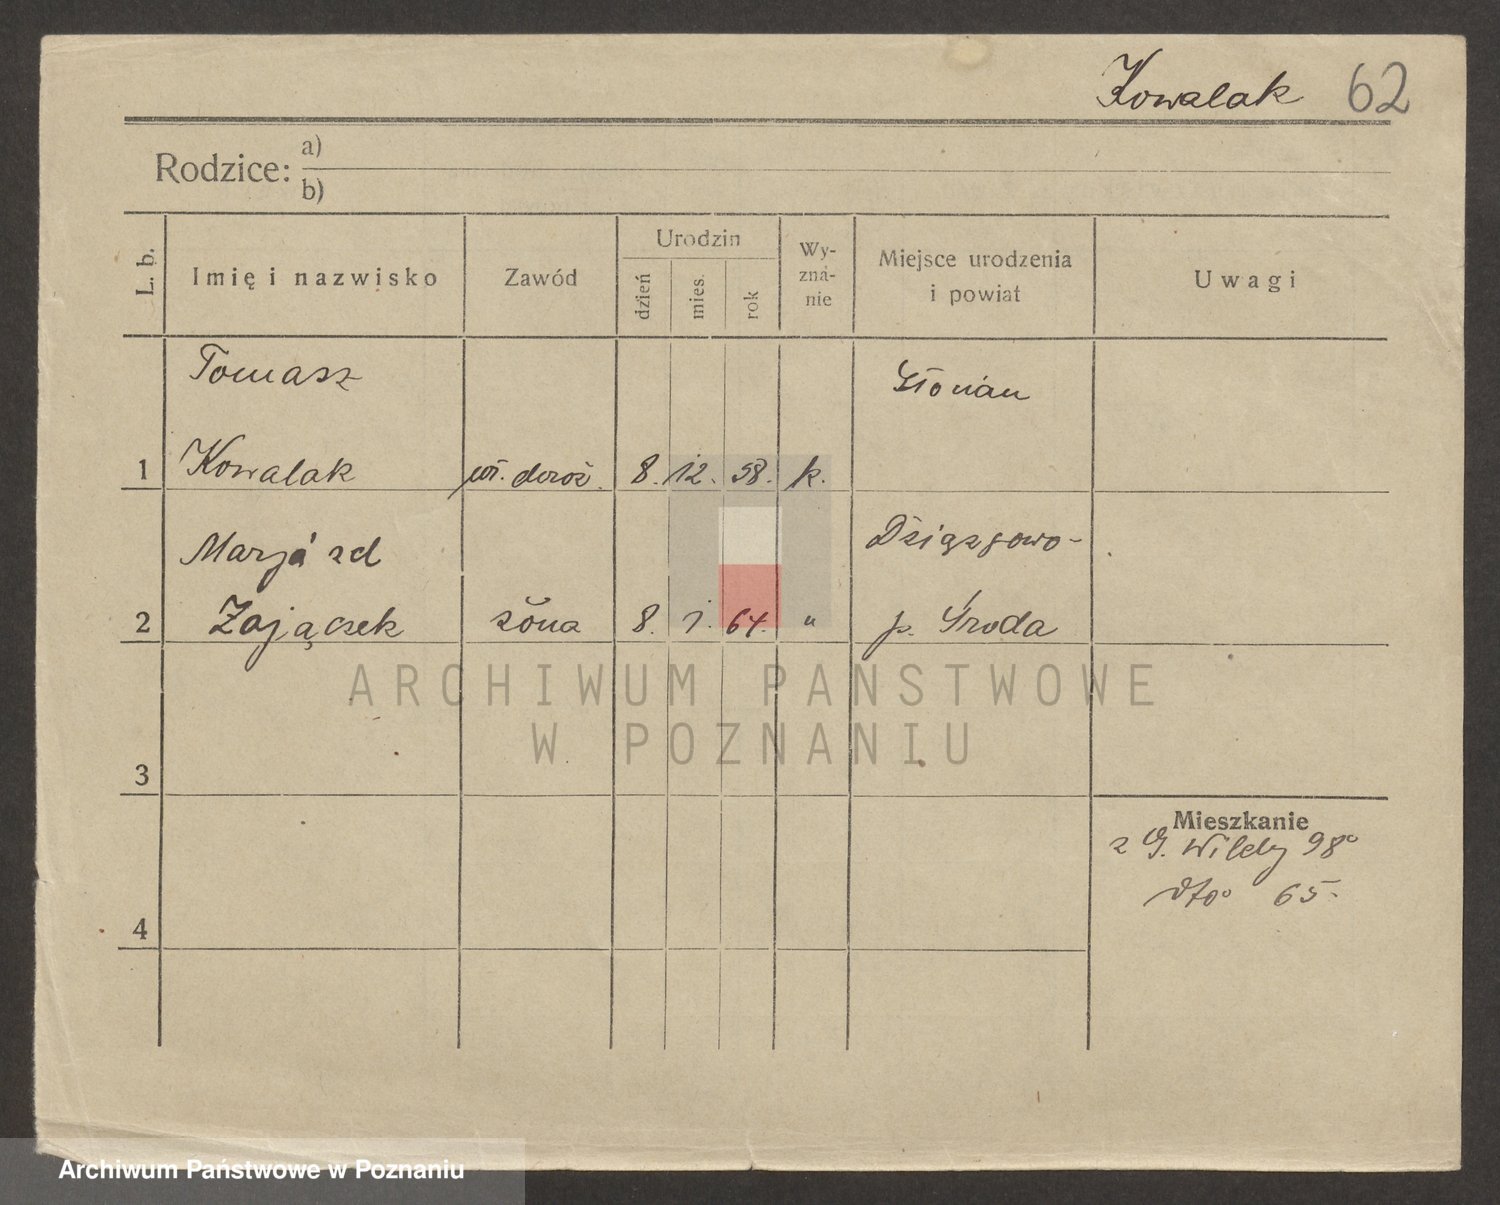 Kowalak 62
Rodzice: a)
b)
L. b.
Imię i nazwisko
Zawód
Urodzin
dzień
mies.
rok
Wy-
zna-
nie
Miejsce urodzenia
i powiat
Uwagi
Tomasz
1 Kowalak wł. doroż. 8. 12. 58. k.
Marja zd
Dziązgowo-
2 Zającek żona 8. 1. 64. " p. Środa
ARCHIWUM PAŃSTWOWE
W POZNANIU
3
Mieszkanie
z G. Wildy 98
dto 65.
4
Archiwum Państwowe w Poznaniu